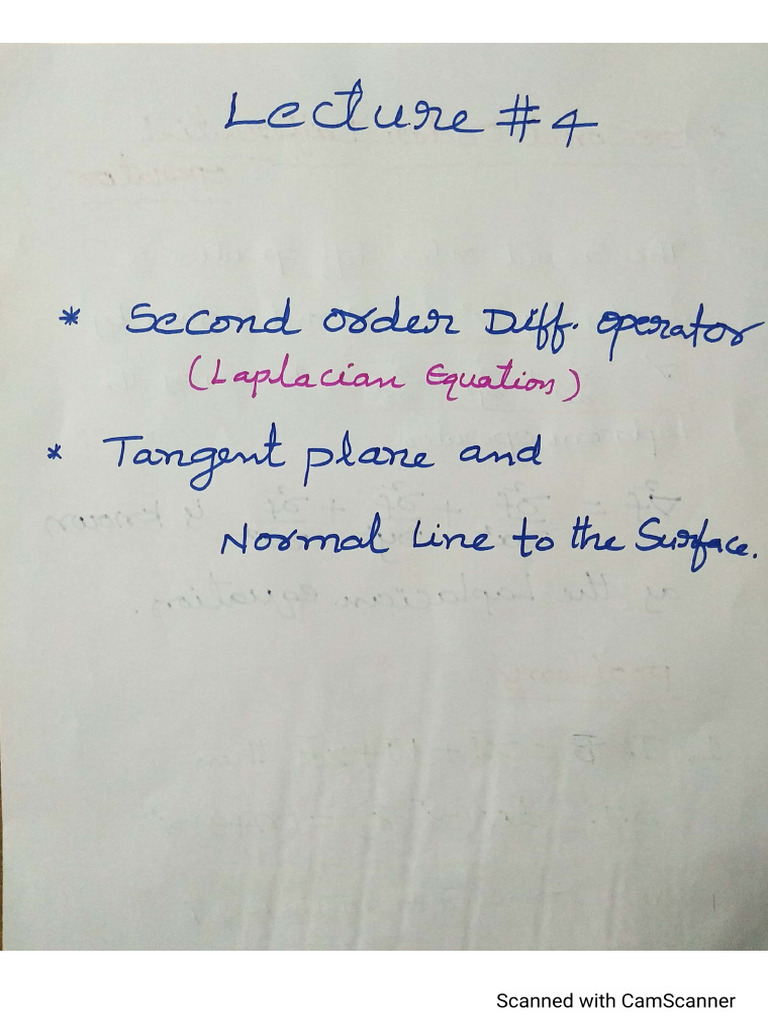 Lecture #4
* Second order Diff. operator
(Laplacian Equation)
* Tangent plane and
Normal Line to the Surface.
Scanned with CamScanner